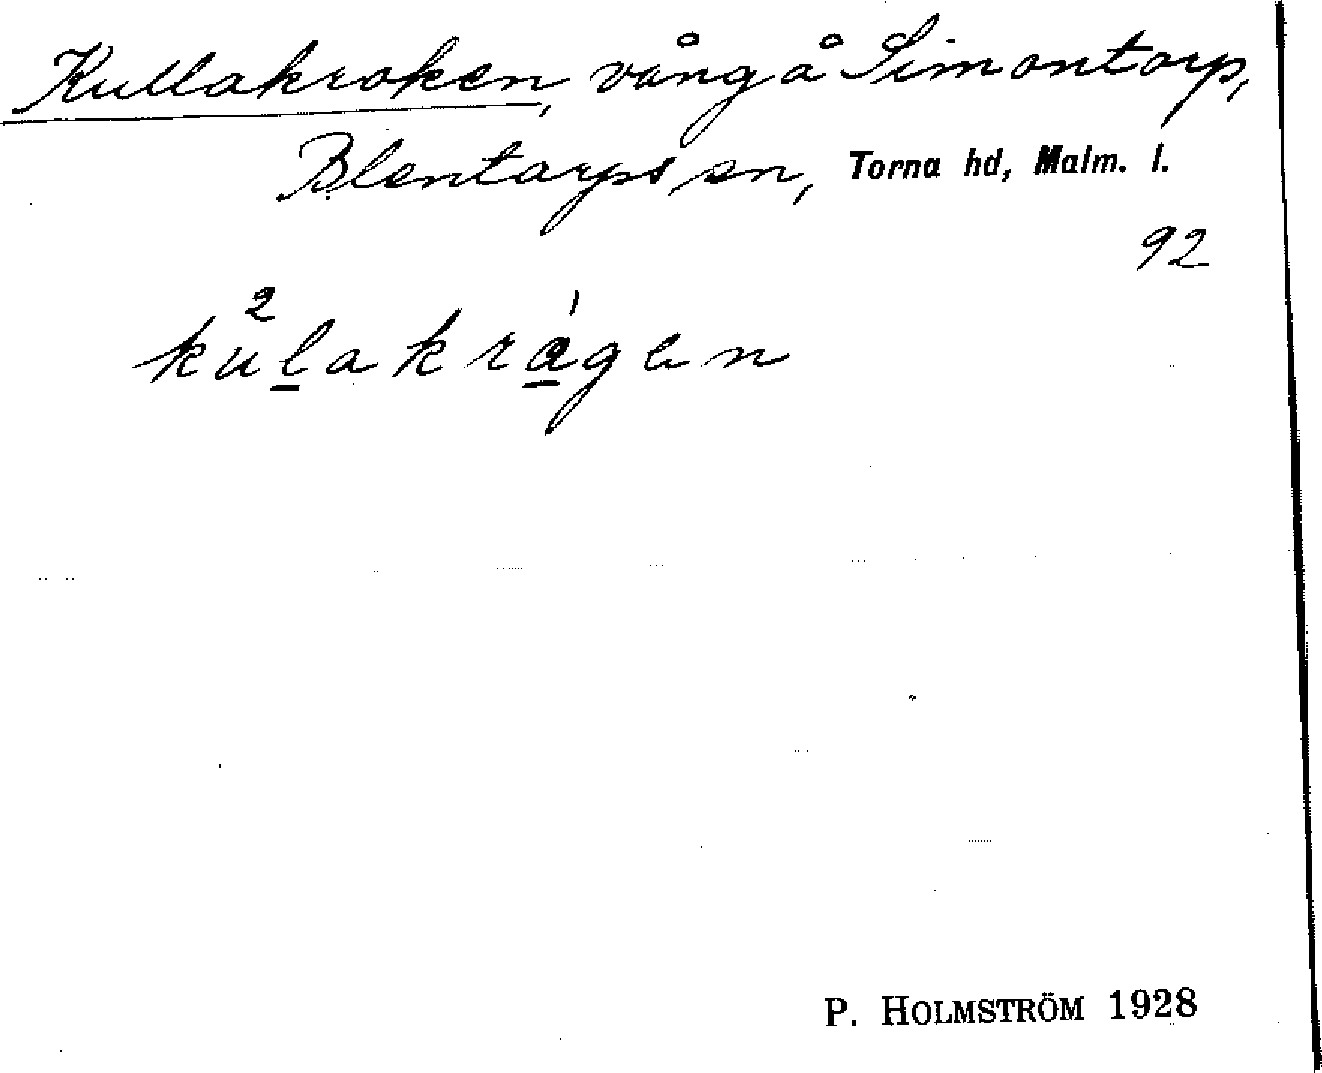 Kullakroken, vång å Simontorp,
Blentarps sn, Torna hd, Malm. l.
92
kůl̲akrȧ̲gen
P. HOLMSTRÖM 1928